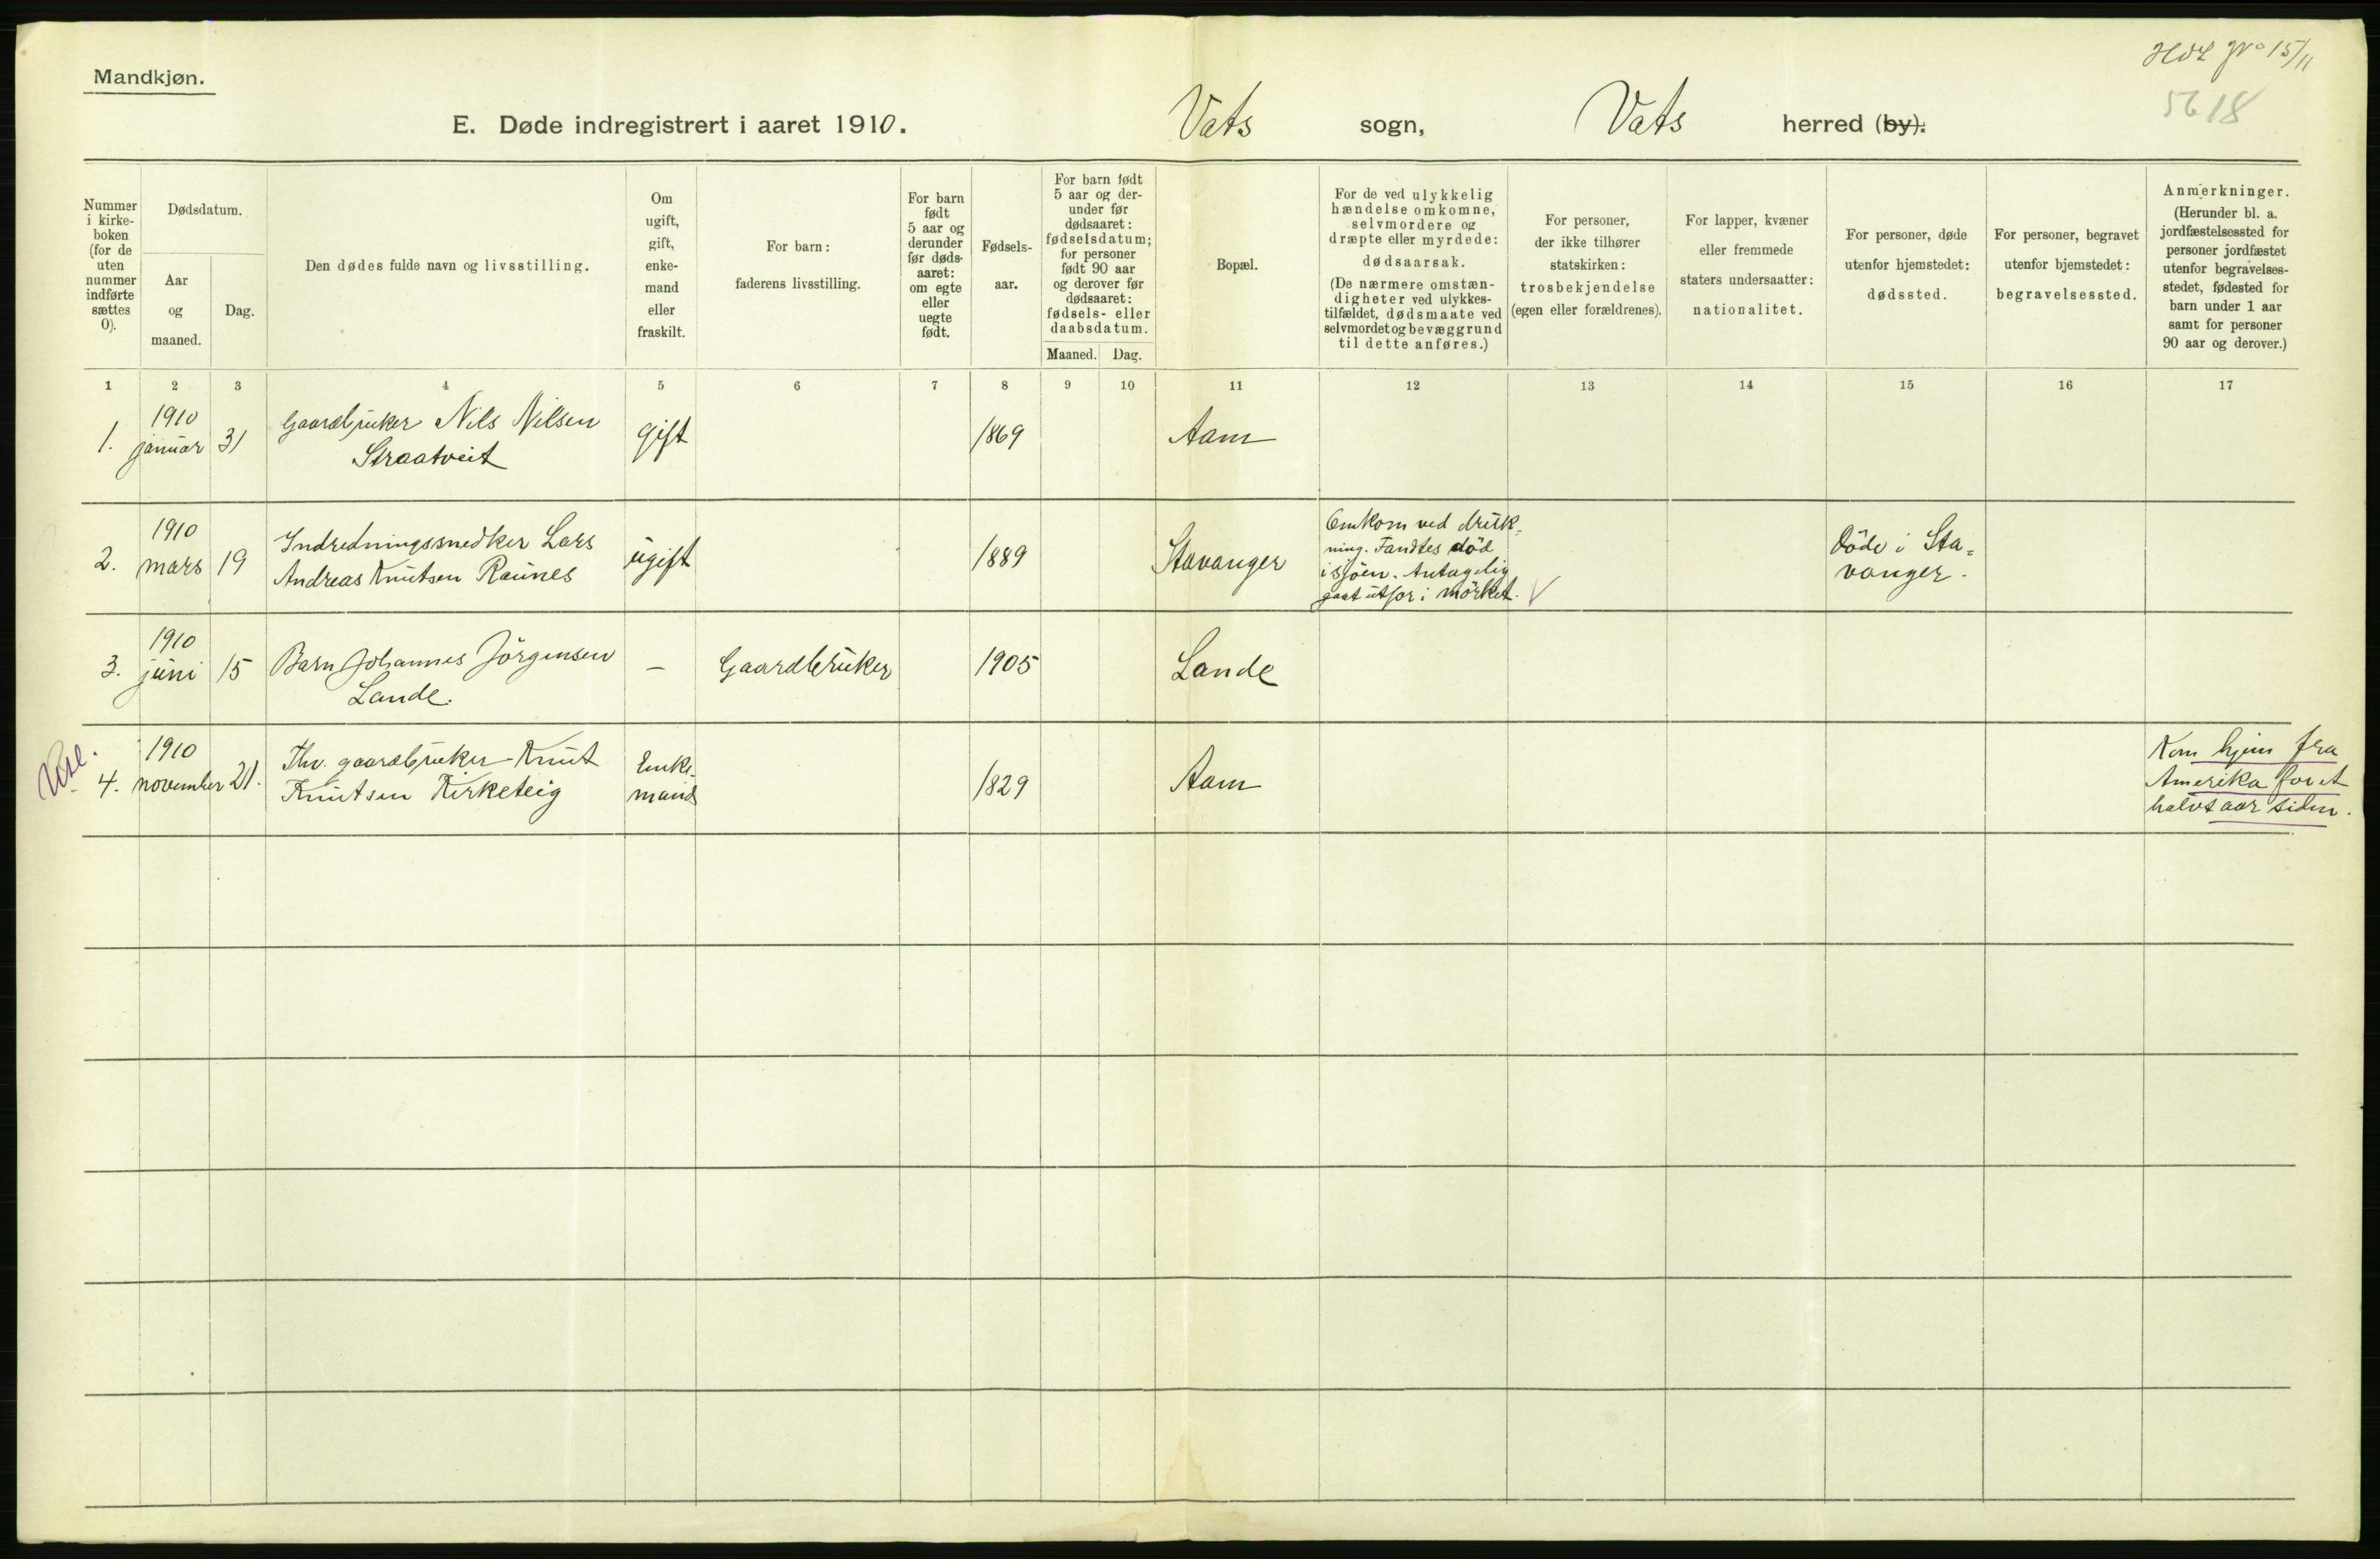 Mandkjøn.
No 15/11
5618
E. Døde indregistrert i aaret 1910. Vats sogn, Vats herred (by).
Nummer
i kirke-
boken
(for de
uten
nummer
indførte
sættes
0).
Dødsdatum.
Aar
og
maaned.
Dag.
Den dødes fulde navn og livsstilling.
Om
ugift,
gift,
enke-
mand
eller
fraskilt.
For barn:
faderens livsstilling.
For barn
født
5 aar og
derunder
før døds-
aaret:
om egte
eller
uegte
født.
Fødsels-
aar.
For barn født
5 aar og der-
under før
dødsaaret:
fødselsdatum;
for personer
født 90 aar
og derover før
dødsaaret:
fødsels- eller
daabsdatum.
Maaned. Dag.
Bopæl.
For de ved ulykkelig
hændelse omkomne,
selvmordere og
dræpte eller myrdede:
dødsaarsak.
(De nærmere omstæn-
digheter ved ulykkes-
tilfældet, dødsmaate ved
selvmordet og bevæggrund
til dette anføres.)
For personer,
der ikke tilhører
statskirken:
trosbekjendelse
(egen eller forældrenes).
For lapper, kvæner
eller fremmede
staters undersaatter:
nationalitet.
For personer, døde
utenfor hjemstedet:
dødssted.
For personer, begravet
utenfor hjemstedet:
begravelsessted.
Anmerkninger.
(Herunder bl. a.
jordfæstelsessted for
personer jordfæstet
utenfor begravelses-
stedet, fødested for
barn under 1 aar
samt for personer
90 aar og derover.)
1 2 3 4 5 6 7 8 9 10 11 12 13 14 15 16 17
1.
1910
januar
31
Gaardbruker Nils Nilsen
Straatveit
gift
1869
Aam
2.
1910
mars
19
Indredningssnedker Lars
Andreas Knutsen Raunes
ugift
1889
Stavanger
Omkom ved druk-
ning. Fandtes död
i sjöen. Antagelig
gaat utfor i mörket.
Döde i Sta-
vanger.
3.
1910
juni
15
Barn Johannes Jörgensen
Lande.
—
Gaardbruker
1905
Lande
4.
1910
november
21.
Fhv. gaardbruker Knut
Knutsen Kirketeig
Enke-
mand
1829
Aam
Kom hjem fra
Amerika for et
halvt aar siden.